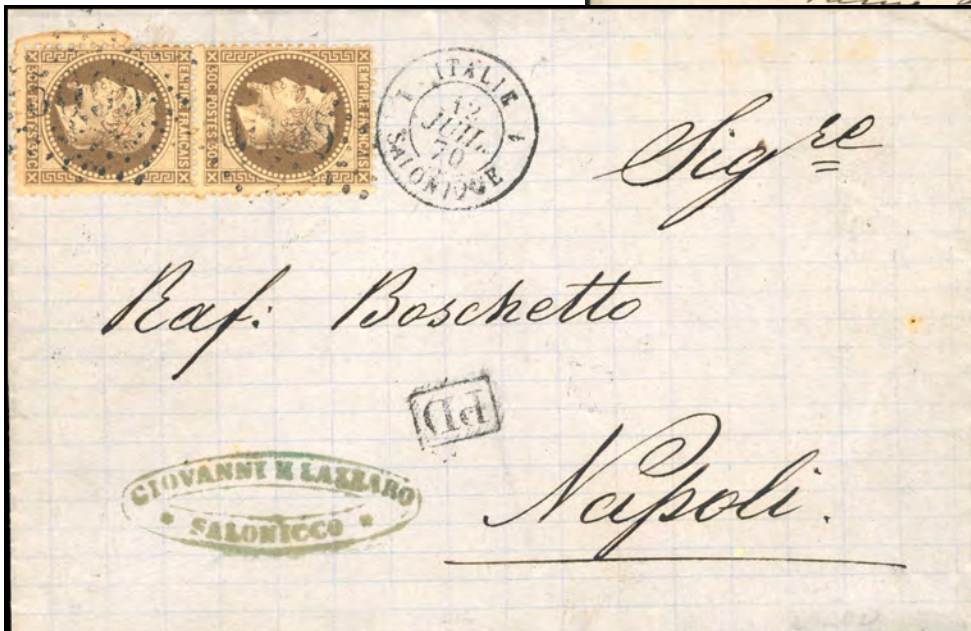 EMPIRE FRANÇAIS
30C POSTES 30C
EMPIRE FRANÇAIS
30C POSTES 30C
ITALIE 1
12
JUIL.
70
SALONIQUE
Sigre
Raf: Boschetto
PD
GIOVANNI K LAZZARO
SALONICCO
Napoli.